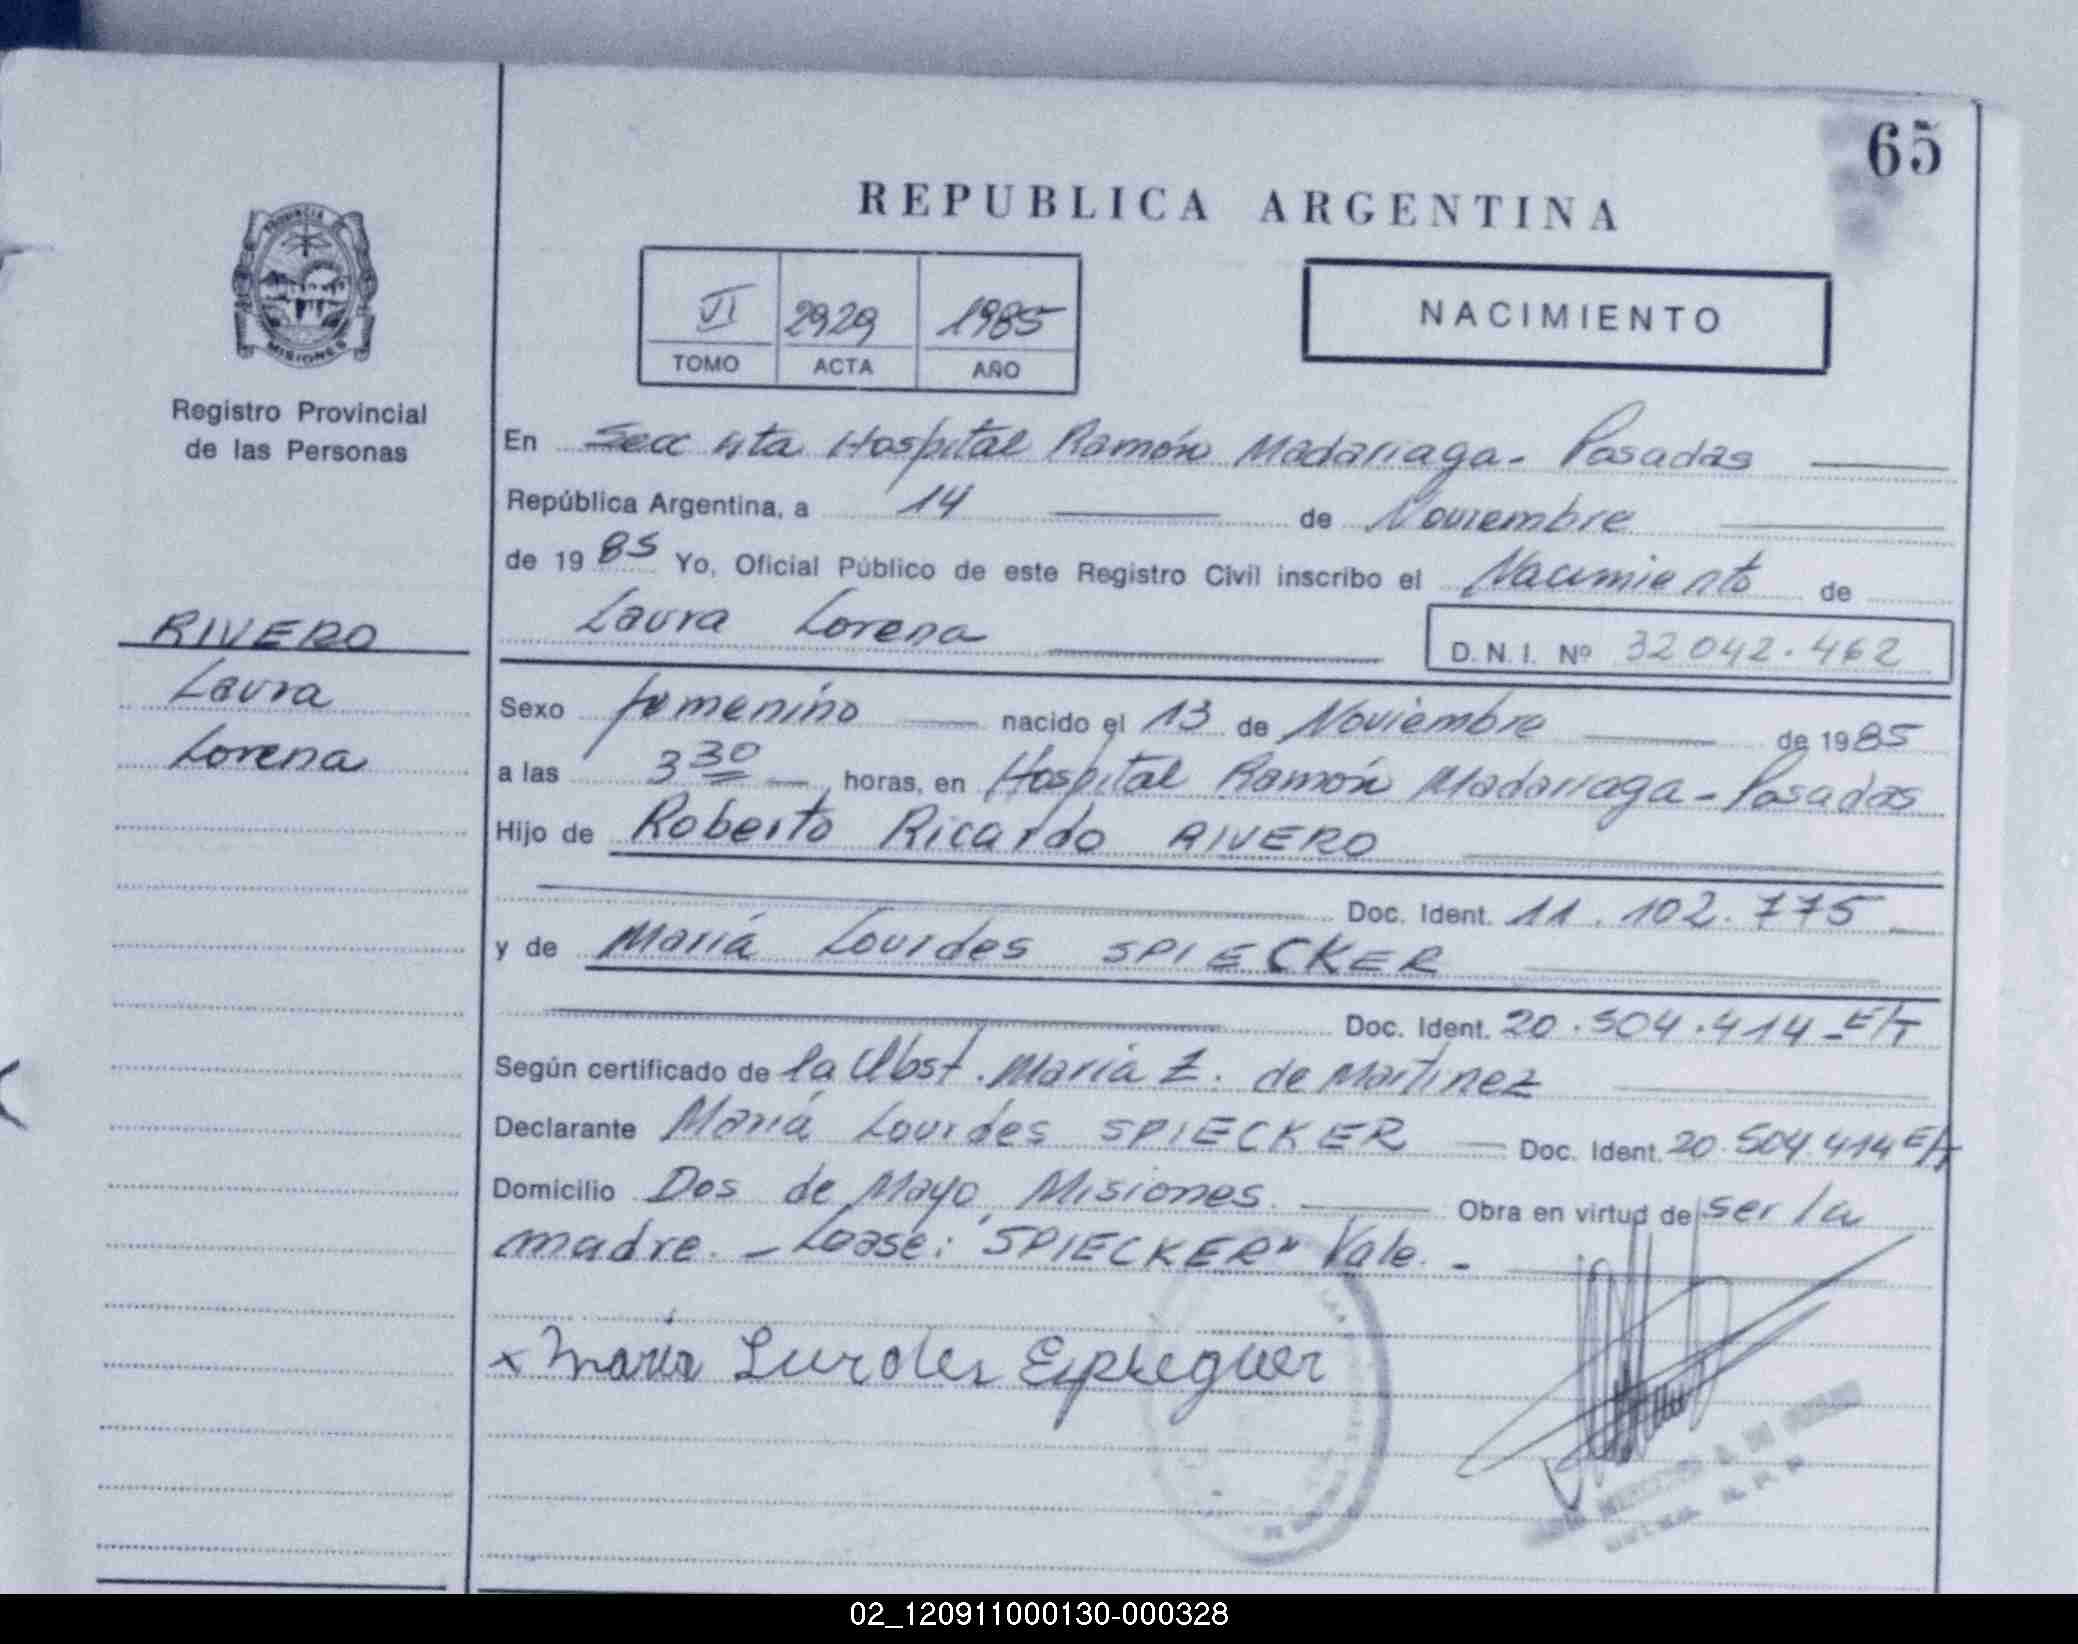 65
REPUBLICA ARGENTINA
PROVINCIA
MISIONES
VI 2929 1985
TOMO ACTA AÑO
NACIMIENTO
Registro Provincial
de las Personas
RIVERO
Laura
Lorena
En Secc 4ta Hospital Ramón Madariaga - Posadas
República Argentina, a 14 de Noviembre
de 1985 Yo, Oficial Público de este Registro Civil inscribo el Nacimiento de
Laura Lorena D.N.I. Nº 32042.462
Sexo femenino nacido el 13 de Noviembre de 1985
a las 3 30 horas, en Hospital Ramón Madariaga - Posadas
Hijo de Roberto Ricardo RIVERO
Doc. Ident. 11.102.775
y de María Lourdes SPIECKER
Doc. Ident. 20.504.414 - E/T
Según certificado de la Obst. María Z. de Martinez
Declarante María Lourdes SPIECKER Doc. Ident. 20.504.414 E/T
Domicilio Dos de Mayo, Misiones. Obra en virtud de ser la
madre. - Léase: "SPIECKER" Vale. -
x María Lurdes Espieguer
02_120911000130-000328